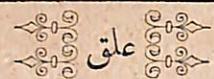 علق